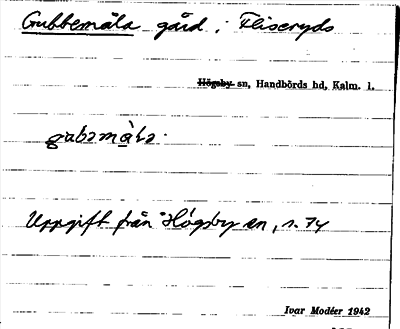 Gubbemåla gård i Fliseryds
Högsby sn, Handbörds hd, Kalm. l.
gubəmåla.
Uppgift från Högsby sn, s. 74
Ivar Modéer 1942